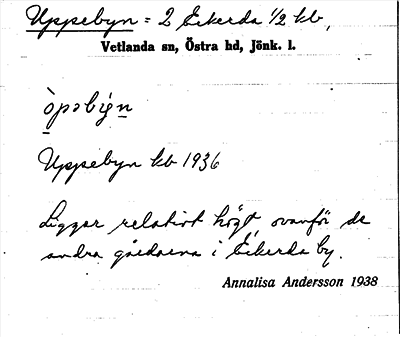 Uppebyn = 2 Eckerda 1/2 kb,
Vetlanda sn, Östra hd, Jönk. l.
òpəbýn
Uppebyn kb 1936
Ligger relativt högt, ovanför de
andra gårdarna i Eckerda by.
Annalisa Andersson 1938